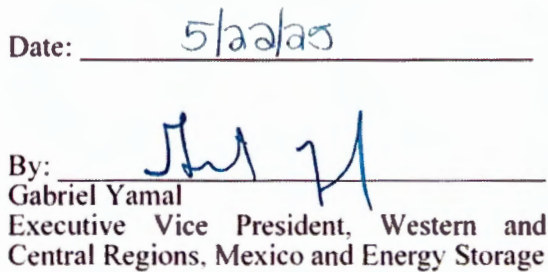 Date: 5/22/25
By:
Gabriel Yamal
Executive Vice President, Western and
Central Regions, Mexico and Energy Storage